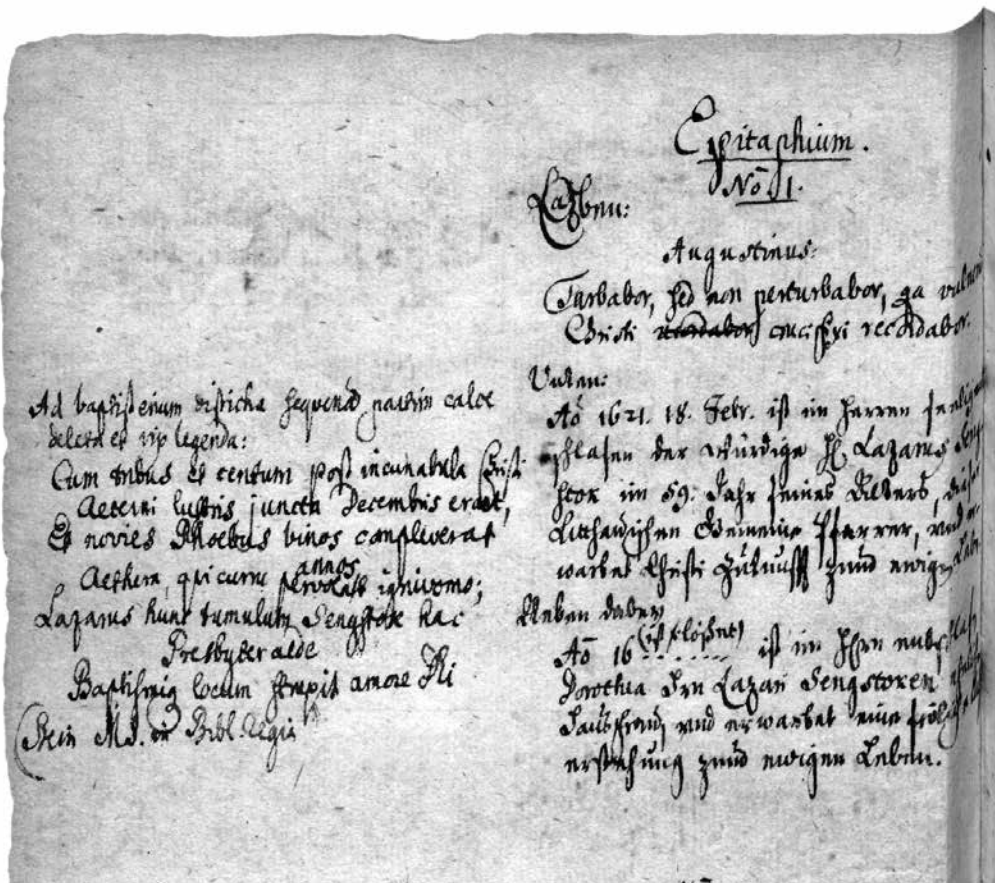 Epitaphium.
No 1.
Oben:
Augustinus:
Turbabor, sed non perturbabor, qa vulnerum
Christi recordabor crucifixi recordabor.
Unten:
Ao 1621. 18. Febr. ist im Herren seelig
schlafen der Würdige H. Lazarus Seng-
stok im 59. Jahr seines Alters, dieser
Litthauischen Gemeine Pfarrer, und er-
wartet Christi Zukunfft zum ewigen Leben
Neben dabey
Ao 16 (ist erlöschet) ist im Herrn entschlafen
Dorothea Lazari Sengstoken
Haußfrau, und erwartet eine fröliche
erstehung zum ewigen Leben.
Ad baptisterium disticha sequentia calce
deleta et vix legenda:
Cum tribus et centum post incunabula Christi
Aeterni lustris juncta Decembris erant,
Et novies Phoebus binos compleverat annos
Aethera, qui curru pervolat ignivomo;
Lazarus hunc tumulum Sengstok hac
Presbyter aede
Baptismiq locum strupit amore
MS. in Bibl. Regia